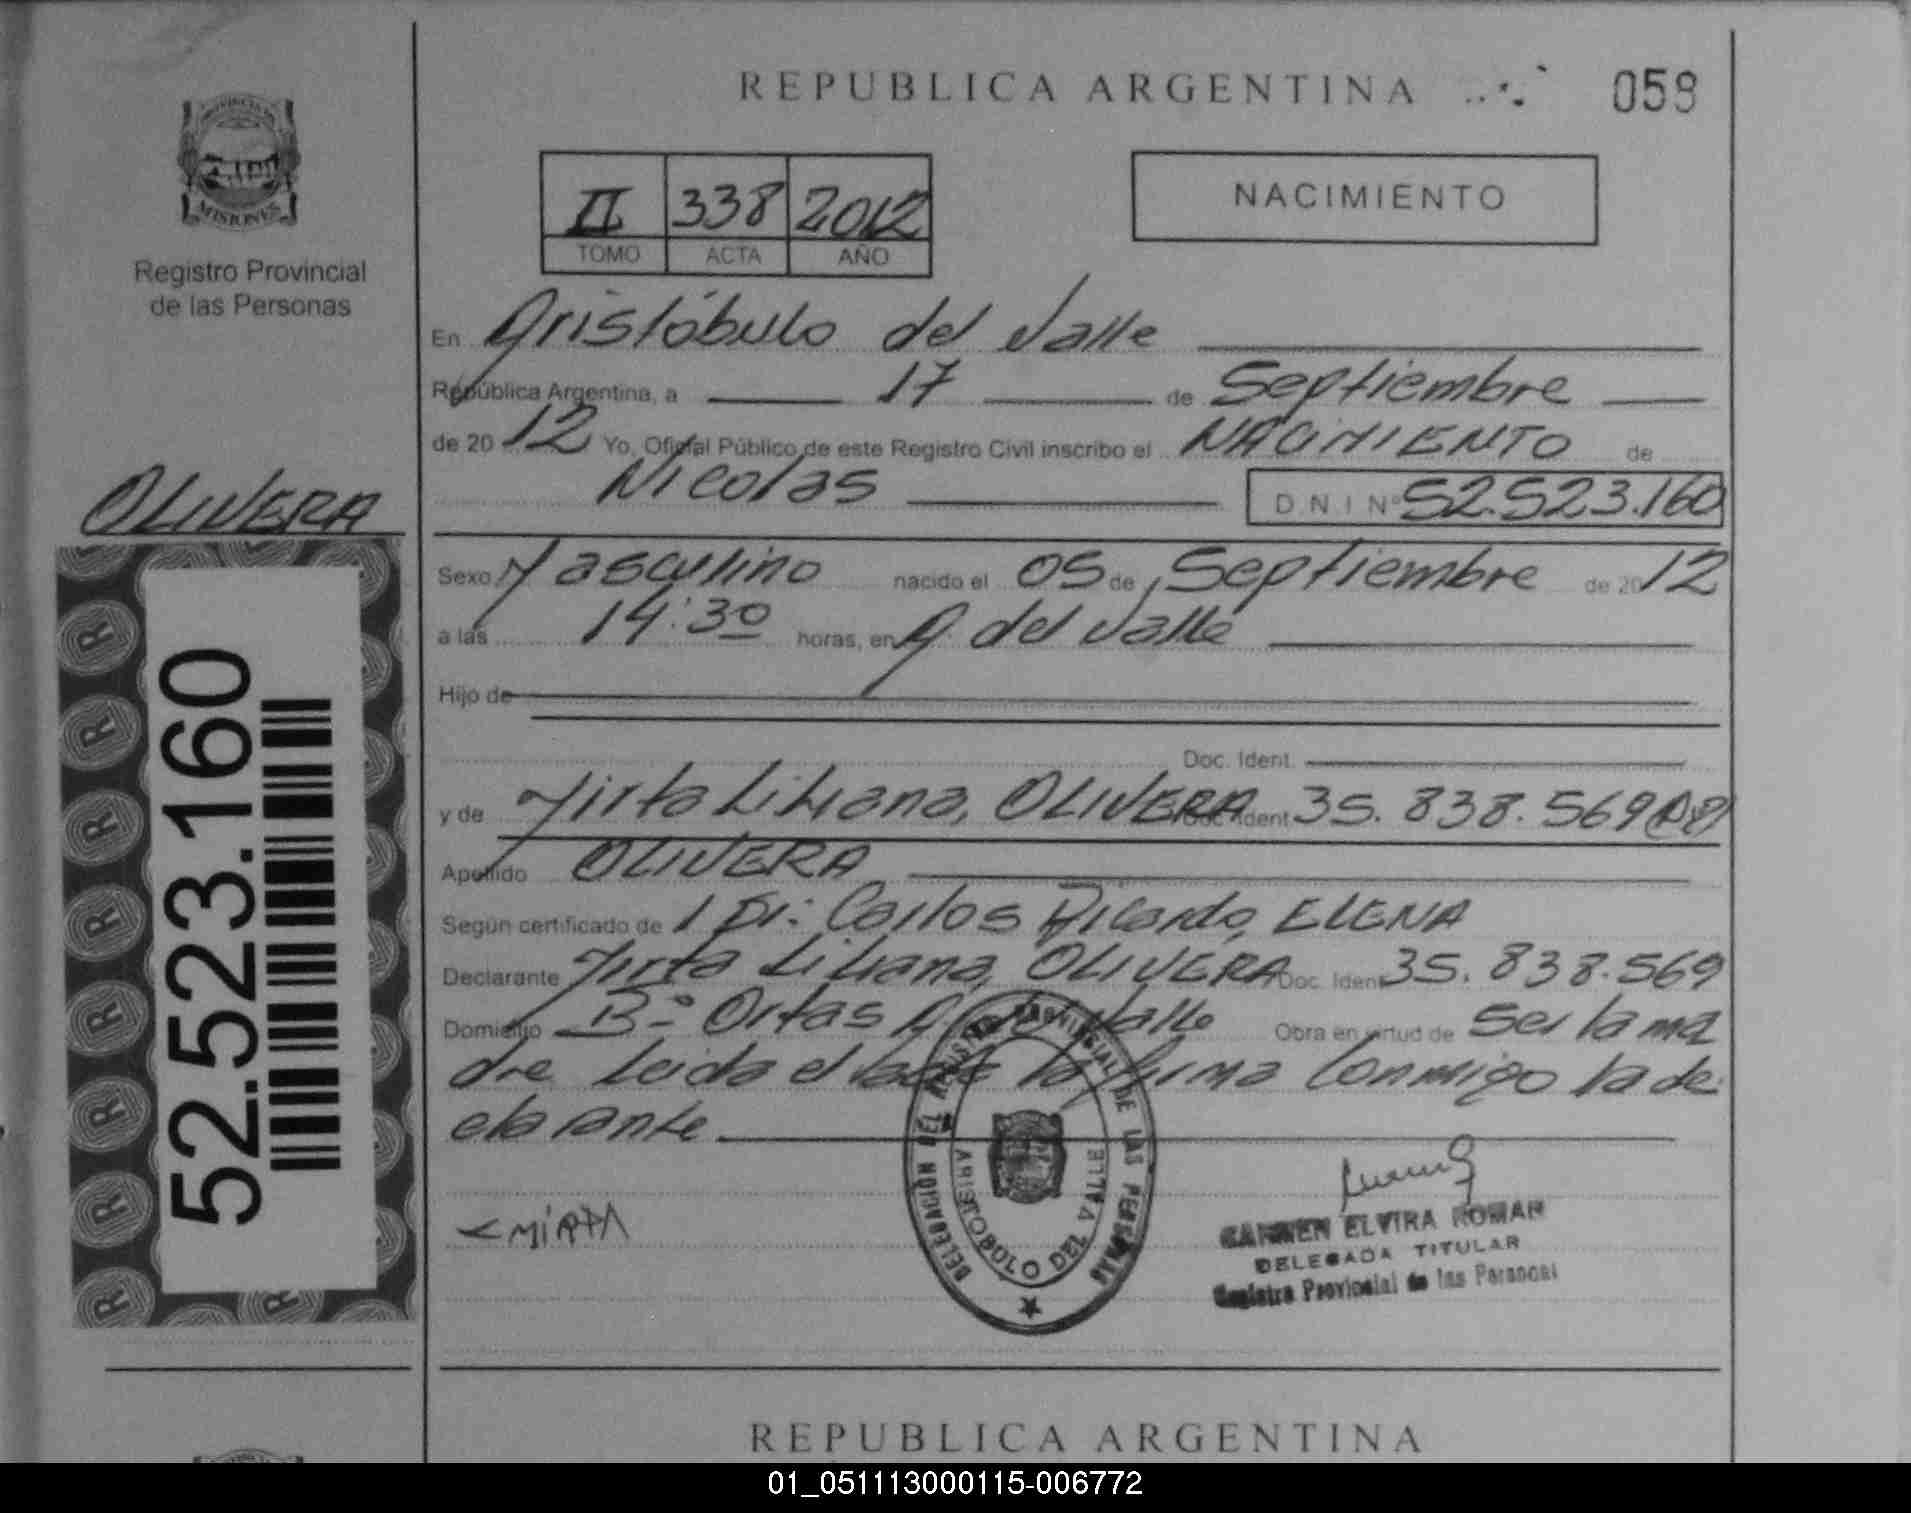 REPUBLICA ARGENTINA
059
PROVINCIA DE
MISIONES
Registro Provincial
de las Personas
II 338 2012
TOMO ACTA AÑO
NACIMIENTO
En Aristóbulo del Valle
República Argentina, a 17 de Septiembre
de 2012 Yo, Oficial Público de este Registro Civil inscribo el NACIMIENTO de
Nicolas D.N.I Nº 52.523.160
OLIVERA
52.523.160
Sexo Masculino nacido el 05 de Septiembre de 2012
a las 14:30 horas, en A. del Valle
Hijo de
Doc. Ident.
y de Mirta Liliana, OLIVERA Doc. Ident 35.838.569
Apellido OLIVERA
Según certificado de 1 Dr: Carlos Ricardo, ELENA
Declarante Mirta Liliana, OLIVERA Doc. Ident 35.838.569
Domicilio Bº Ortas A. del Valle Obra en virtud de Ser la ma
dre Leida el acta la firma Conmigo la de
clarante
DELEGACION DEL REGISTRO PROVINCIAL DE LAS PERSONAS
ARISTOBULO DEL VALLE
MIRTA
CARMEN ELVIRA ROMAN
DELEGADA TITULAR
Registro Provincial de las Personas
REPUBLICA ARGENTINA
01_051113000115-006772